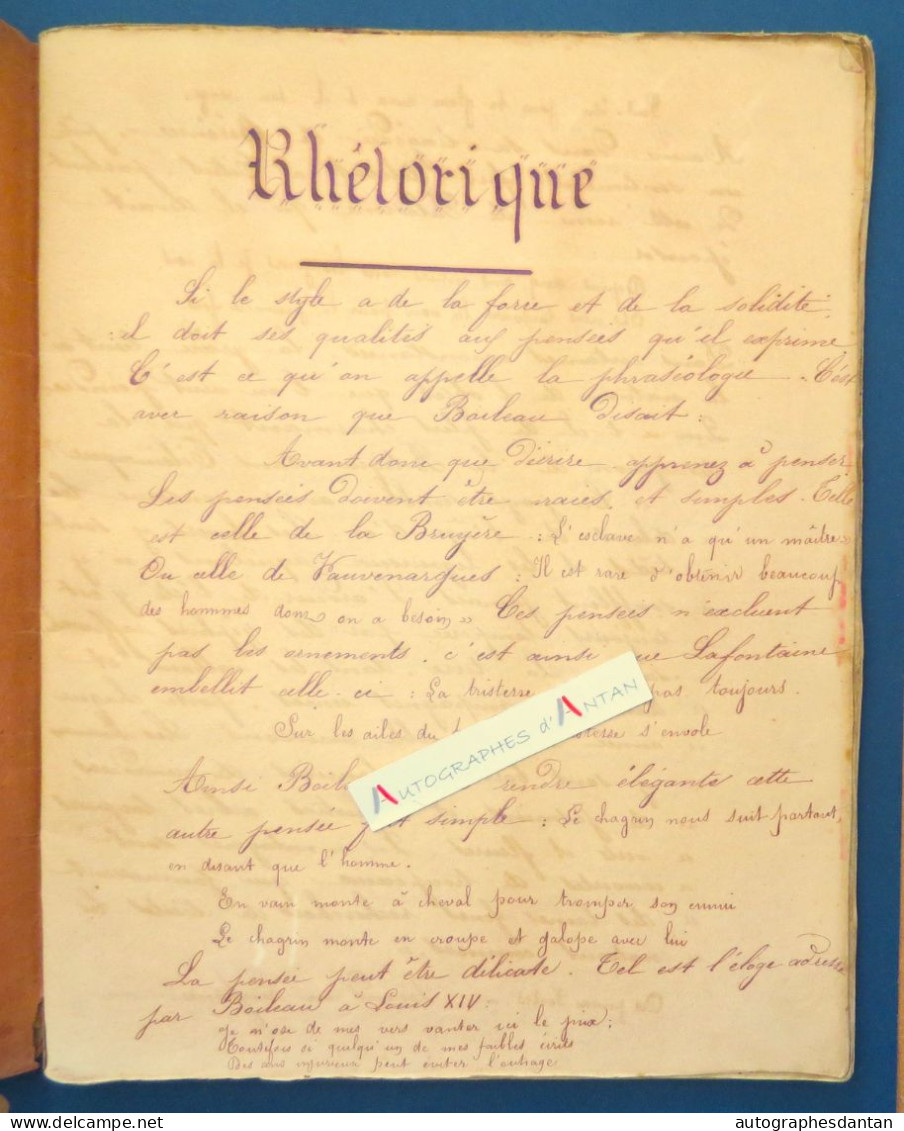 Rhétorique
Si le style a de la force et de la solidité
il doit ses qualités aux pensées qu'il exprime
C'est ce qu'on appelle la phraséologie. C'est
avec raison que Boileau disait :
Avant donc que d'écrire apprenez à penser
Les pensées doivent être vraies et simples. Telle
est celle de la Bruyère : L'esclave n'a qu'un maître »
Ou celle de Vauvenargues : Il est rare d'obtenir beaucoup
des hommes dont on a besoin » Ces pensées n'excluent
pas les ornements. c'est ainsi que Lafontaine
embellit celle-ci : La tristesse pas toujours.
Sur les ailes du s'envole
Ainsi rendre élégante cette
autre pensée simple : Le chagrin nous suit partout,
en disant que l'homme.
En vain monte à cheval pour tromper son ennui
Le chagrin monte en croupe et galope avec lui
La pensée peut être délicate. Tel est l'éloge adressé
par Boileau à Louis XIV :
Je n'ose de mes vers vanter ici le prix :
Toutefois si quelqu'un de mes faibles écrits
Des ans injurieux peut éviter l'outrage
AUTOGRAPHES d'ANTAN
delcampe.net
autographesdantan